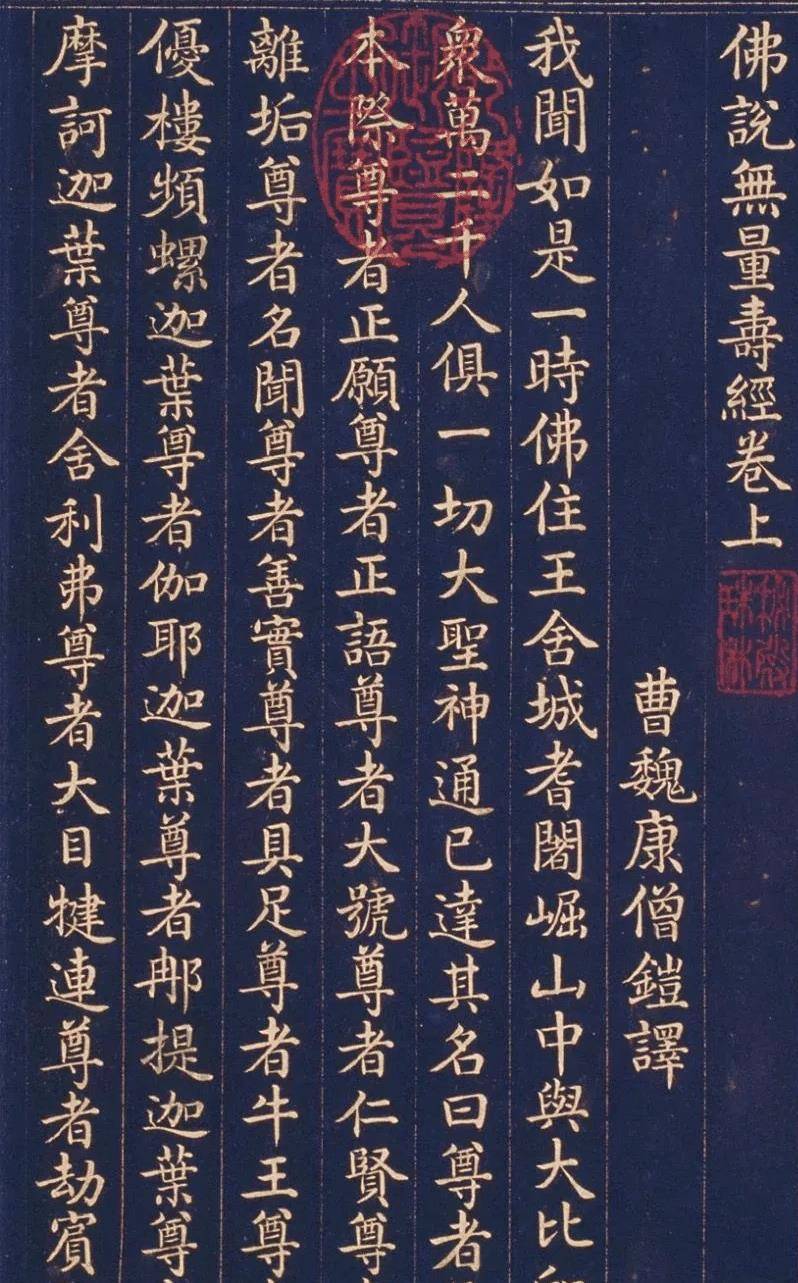 佛說無量壽經卷上
曹魏康僧鎧譯
我聞如是一時佛住王舍城耆闍崛山中與大比
眾萬二千人俱一切大聖神通已達其名曰尊者
本際尊者正願尊者正語尊者大號尊者仁賢尊
離垢尊者名聞尊者善實尊者具足尊者牛王尊
優樓頻螺迦葉尊者伽耶迦葉尊者那提迦葉尊
摩訶迦葉尊者舍利弗尊者大目犍連尊者劫賓